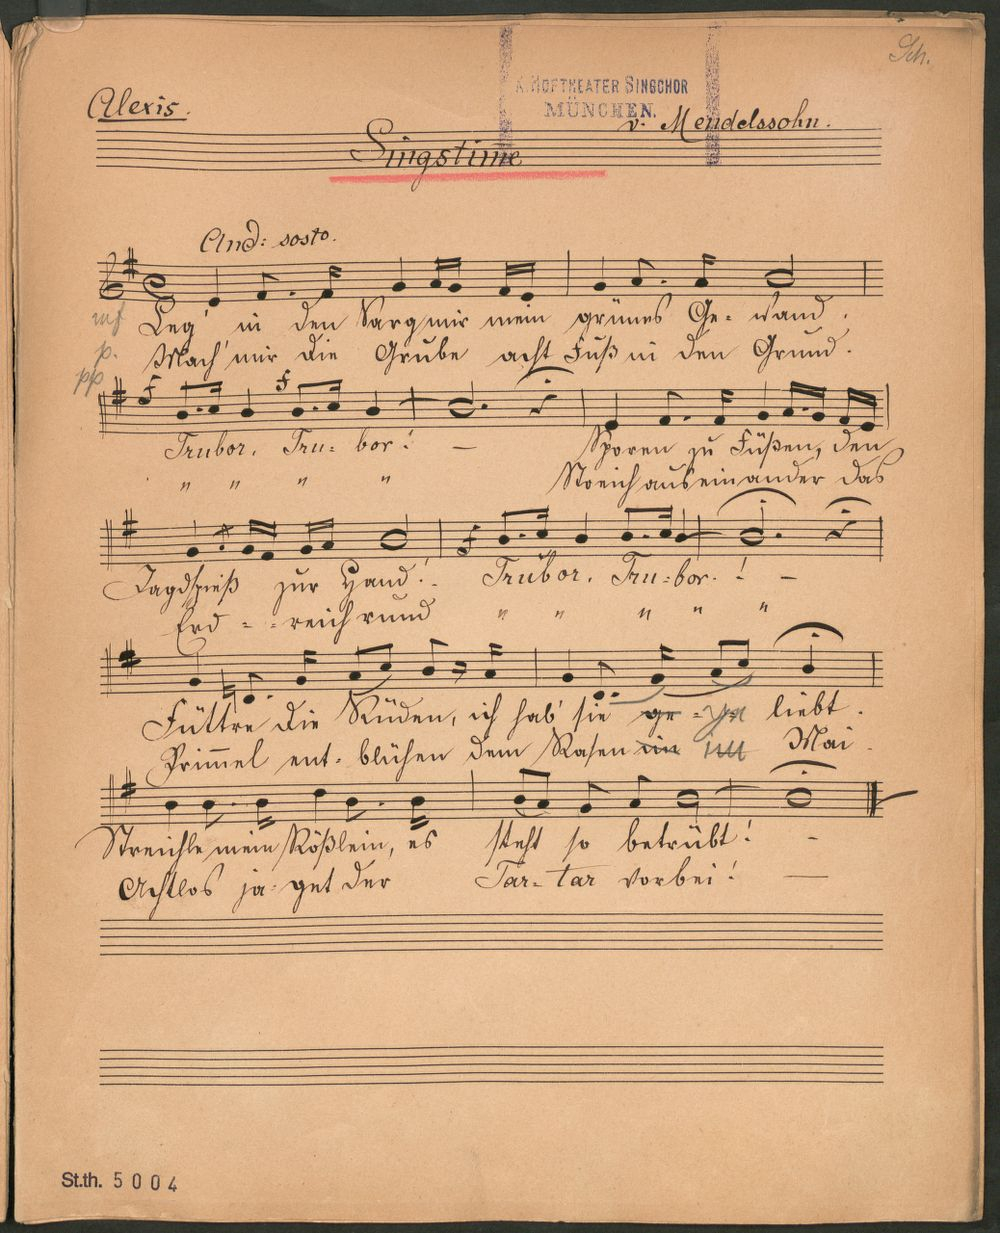 Sch.
K. HOFTHEATER SINGCHOR
MÜNCHEN.
Alexis.
v. Mendelssohn.
Singstime
And: sosto.
mf Leg' in den Sarg mir mein grünes Ge- wand.
p. Mach' mir die Grube acht Fuß in den Grund.
pp
Trubor, Tru- bor! — Sporen zu Füßen, den
" " " " Streich auseinander das
Jagdspieß zur Hand! Trubor, Tru- bor! —
Erd - - reich rund " " " " "
Füttre die Rüden, ich hab' sie ge- liebt.
Primmel ent- blühen dem Rasen im im Mai.
Streichle mein Rößlein, es steht so betrübt! -
Achtlos ja- get der Tar- tar vorbei! —
St.th. 5004